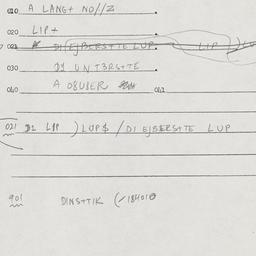 010 A LANG+ NO//Z
020 LIP+
DI EJBERS+TE LUP LIP
030 DI UNT3RS+TE
040 A OBUBER 041
021 DI LIP ) LUP$ / DI EJBERS+TE LUP
901 DINS+TIK (/18401